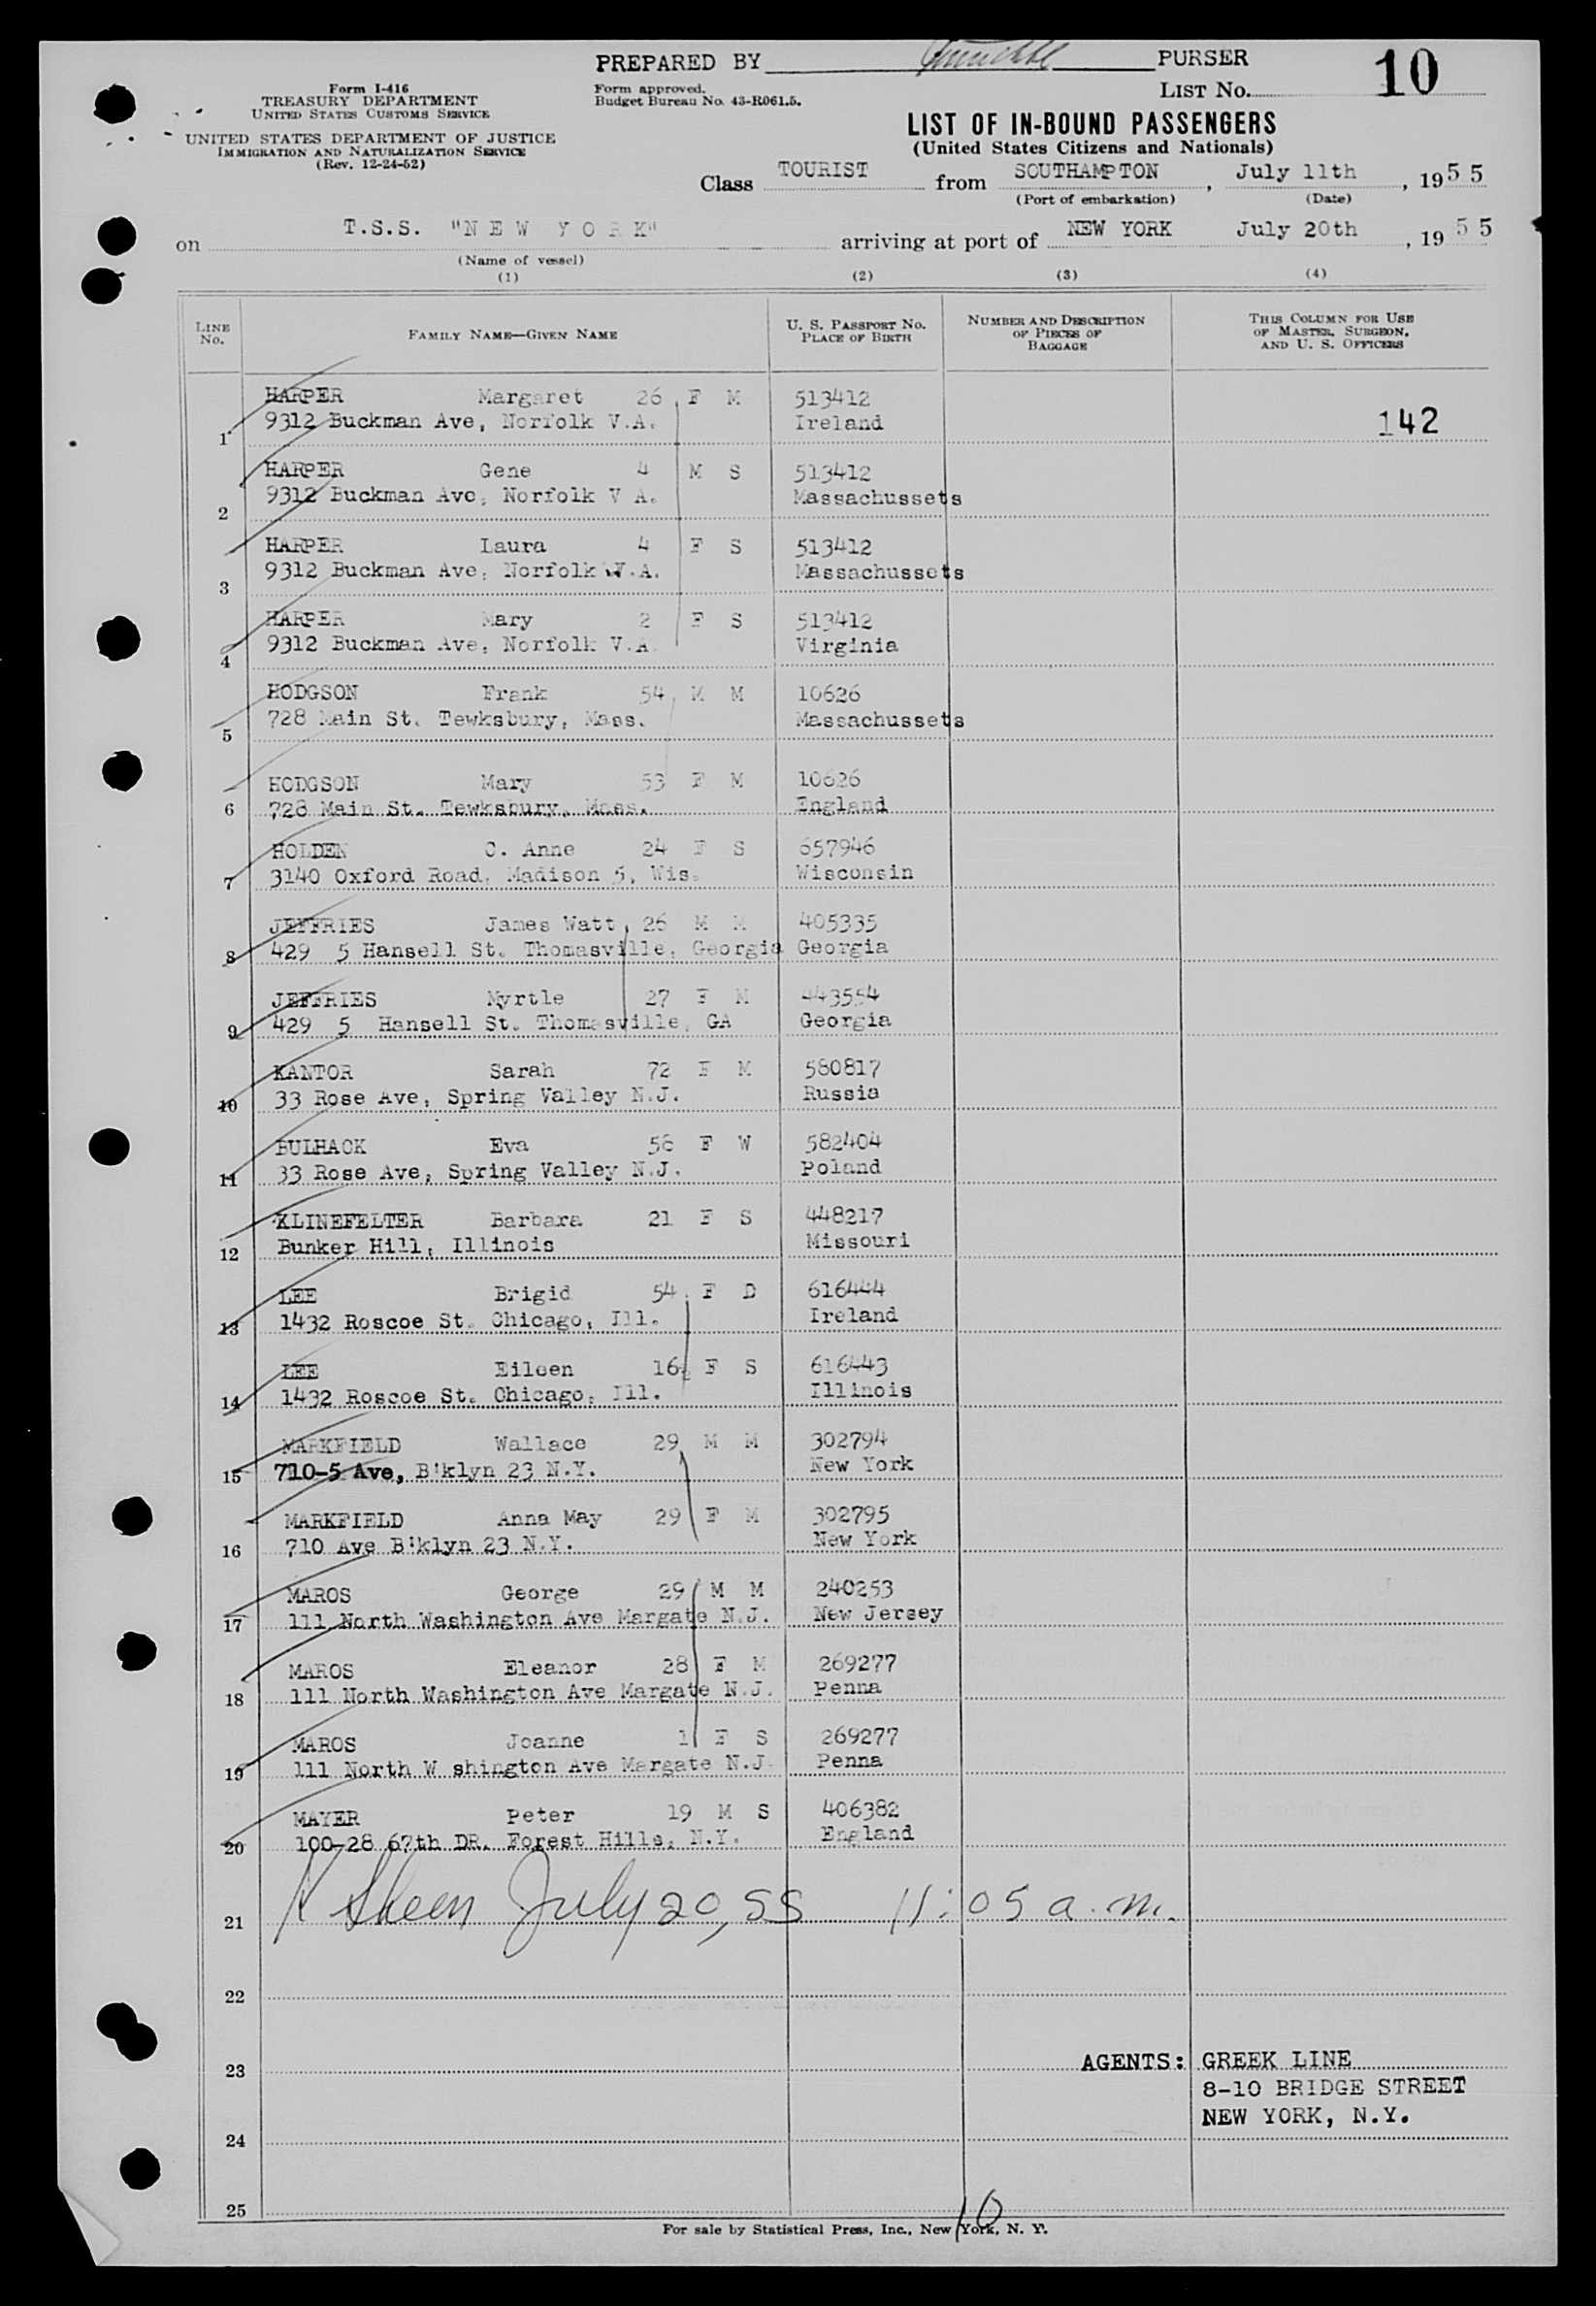 PREPARED BY PURSER
10
LIST No.
Form I-416
TREASURY DEPARTMENT
UNITED STATES CUSTOMS SERVICE
UNITED STATES DEPARTMENT OF JUSTICE
IMMIGRATION AND NATURALIZATION SERVICE
(Rev. 12-24-52)
Form approved.
Budget Bureau No. 43-R061.5.
LIST OF IN-BOUND PASSENGERS
(United States Citizens and Nationals)
Class TOURIST from SOUTHAMPTON, July 11th, 1955
(Port of embarkation) (Date)
on T.S.S. "NEW YORK" arriving at port of NEW YORK July 20th, 1955
(Name of vessel)
(1) (2) (3) (4)
LINE No. FAMILY NAME—GIVEN NAME U. S. PASSPORT No. PLACE OF BIRTH NUMBER AND DESCRIPTION OF PIECES OF BAGGAGE THIS COLUMN FOR USE OF MASTER, SURGEON, AND U. S. OFFICERS
HARPER Margaret 26 F M 513412
1 9312 Buckman Ave, Norfolk V.A. Ireland 142
HARPER Gene 4 M S 513412
2 9312 Buckman Ave, Norfolk V A. Massachussets
HARPER Laura 4 F S 513412
3 9312 Buckman Ave, Norfolk V.A. Massachussets
HARPER Mary 2 F S 513412
4 9312 Buckman Ave, Norfolk V.A. Virginia
HODGSON Frank 54 M M 10626
5 728 Main St. Tewksbury, Mass. Massachussets
HODGSON Mary 53 F M 10626
6 728 Main St. Tewksbury, Mass. England
HOLDEN C. Anne 24 F S 657946
7 3140 Oxford Road, Madison 5, Wis. Wisconsin
JEFFRIES James Watt 26 M M 405335
8 429 5 Hansell St. Thomasville, Georgia Georgia
JEFFRIES Myrtle 27 F M 443554
9 429 5 Hansell St. Thomasville, GA Georgia
KANTOR Sarah 72 F M 580817
10 33 Rose Ave, Spring Valley N.J. Russia
BULHACK Eva 56 F W 582404
11 33 Rose Ave, Spring Valley N.J. Poland
KLINEFELTER Barbara 21 F S 448217
12 Bunker Hill, Illinois Missouri
LEE Brigid 54 F D 616444
13 1432 Roscoe St. Chicago, Ill. Ireland
LEE Eileen 16½ F S 616443
14 1432 Roscoe St. Chicago, Ill. Illinois
MARKFIELD Wallace 29 M M 302794
15 710-5 Ave, B'klyn 23 N.Y. New York
MARKFIELD Anna May 29 F M 302795
16 710 Ave B'klyn 23 N.Y. New York
MAROS George 29 M M 240253
17 111 North Washington Ave Margate N.J. New Jersey
MAROS Eleanor 28 F M 269277
18 111 North Washington Ave Margate N.J. Penna
MAROS Joanne 1 F S 269277
19 111 North W shington Ave Margate N.J. Penna
MAYER Peter 19 M S 406382
20 100-28 67th DR. Forest Hills, N.Y. England
21 K Sheen July 20, 55 11:05 a.m.
22
23 AGENTS: GREEK LINE
8-10 BRIDGE STREET
NEW YORK, N.Y.
24
25
10
For sale by Statistical Press, Inc., New York, N. Y.